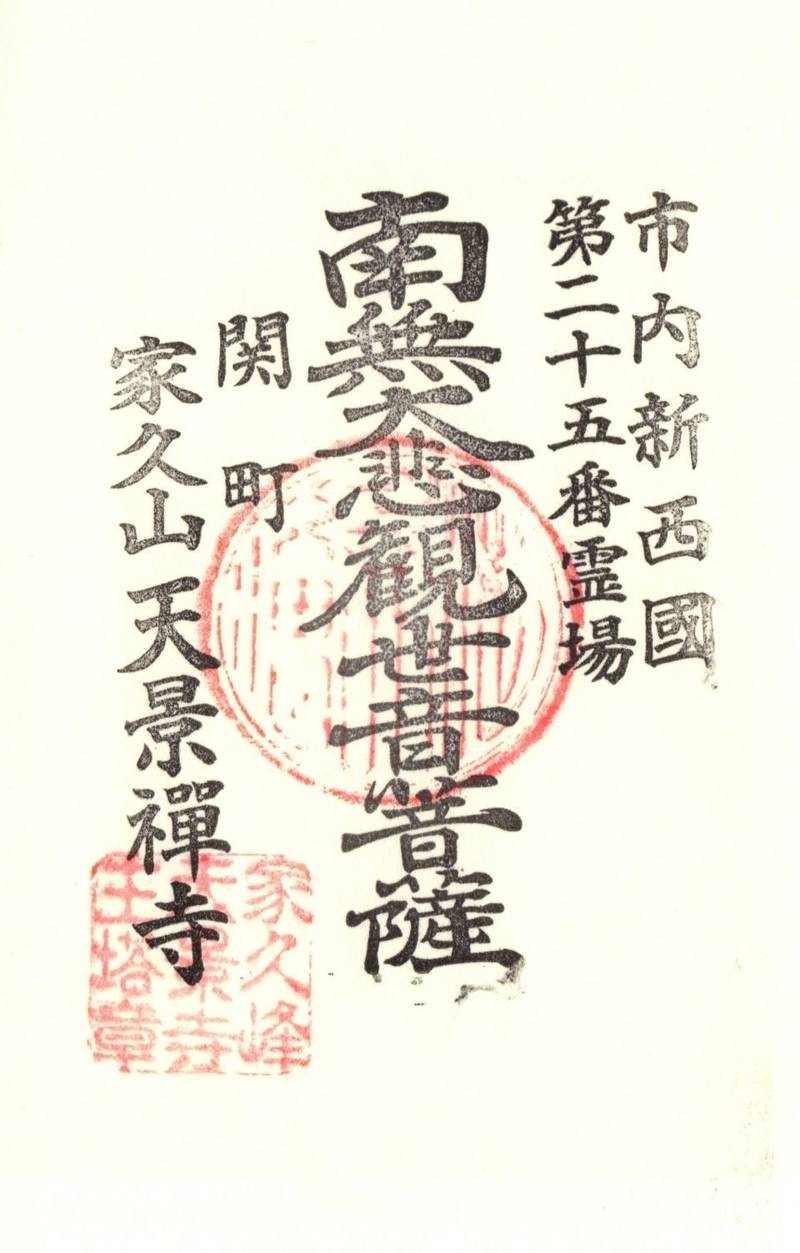 市内新西國
第二十五番霊場
南無大悲観世音菩薩
関町
家久山天景禪寺
家久峰
天景寺
主塔章